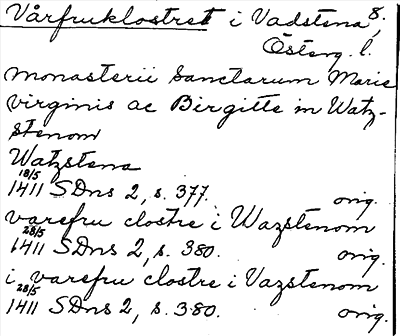 Vårfruklostret i Vadstena, 8.
Österg. l.
monasterii Sanctarum Marie
virginis ac Birgitte in Watz-
stenom
Watzstena
18/5
1411 SDns 2, s. 377. orig.
varefru clostre i Wazstenom
28/5
1411 SDns 2, s. 380. orig.
i varefru clostre i Vazstenom
28/5
1411 SDns 2, s. 380. orig.